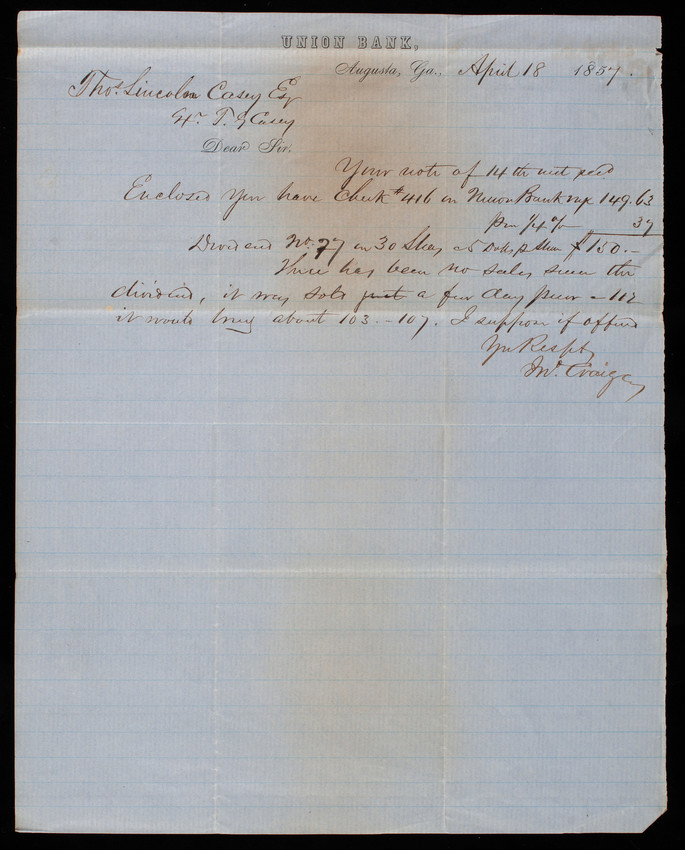 UNION BANK,
Augusta, Ga., April 18 1857.
Thos. Lincoln Casey Esq
Casey
Dear Sir.
Your note of 14th inst
Enclosed you have Check #416 on Union Bank 149.63
prm 1/4 % 37
Dividend No. 77 on 30 Shares 5 Dolls pr Share $150.-
There has been no sales since the
dividend, it was sold just a few days prior - 112
it would bring about 103 - 107. I suppose if offered
Yr Respty
Jno. Craig